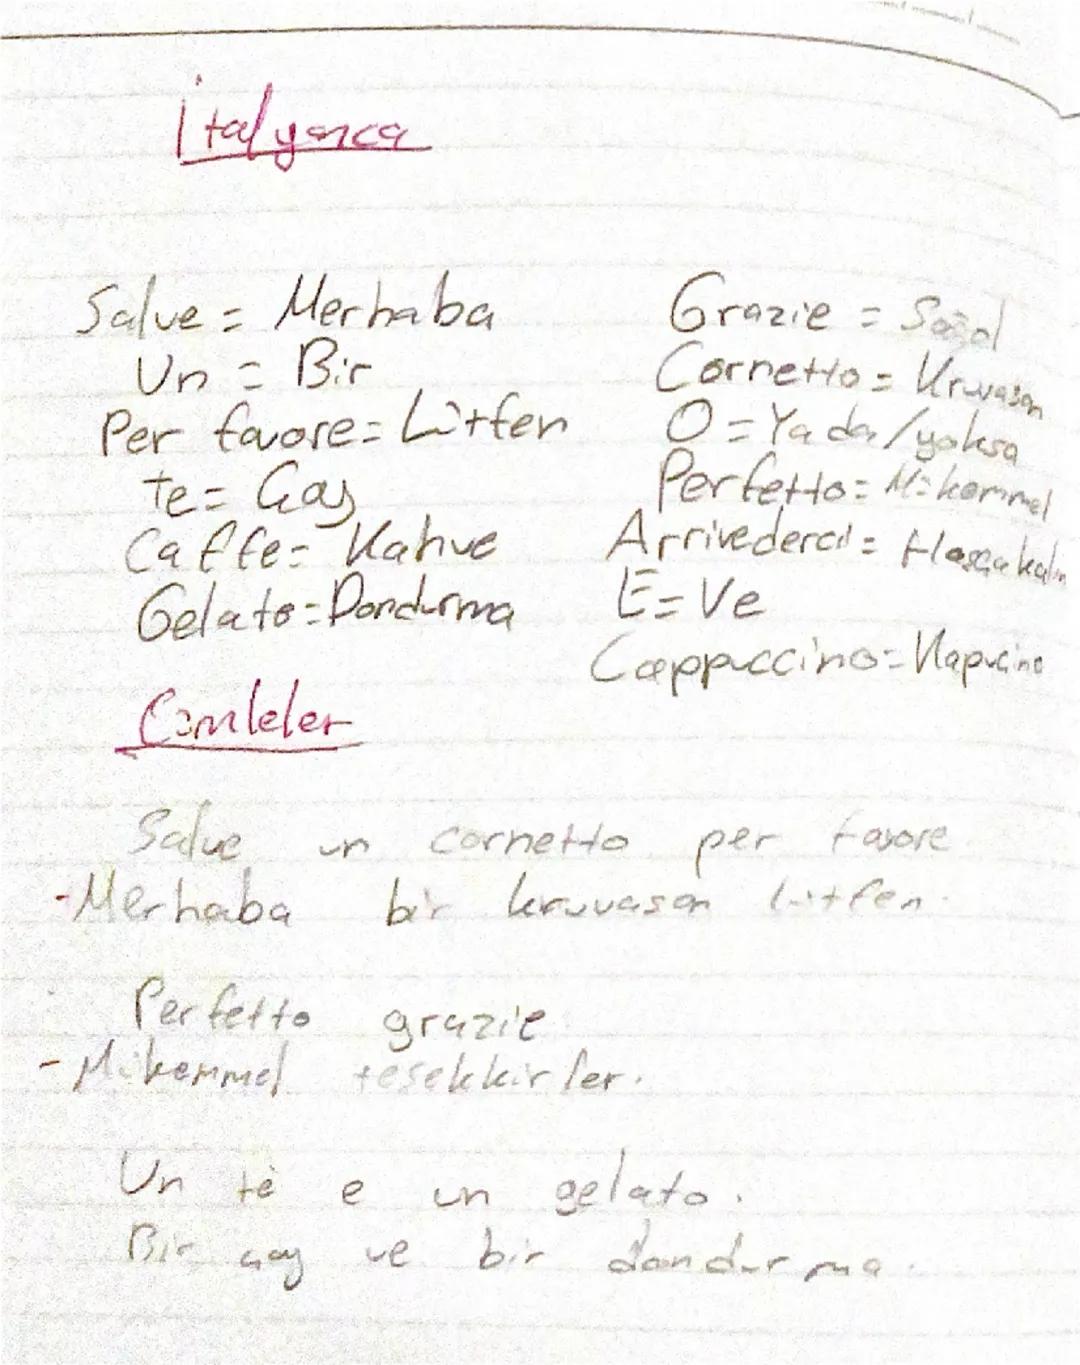 İtalyanca
Salve = Merhaba
Un = Bir
Per favore = Lütfen
te = Çay
Caffe = Kahve
Gelato = Dondurma
Grazie = Sağol
Cornetto = Kruvasan
O = Ya da / yoksa
Perfetto = Mükemmel
Arrivederci = Hoşçakalın
E = Ve
Cappuccino = Kapucino
Cümleler
Salve un cornetto per favore.
- Merhaba bir kruvasan lütfen.
Perfetto grazie.
- Mükemmel teşekkürler.
Un tè e un gelato.
Bir çay ve bir dondurma.